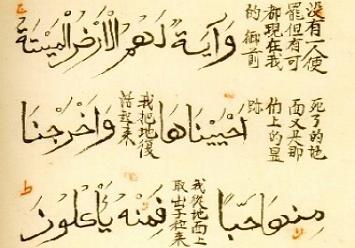 没有一人使
罷但有可
都現在我
的御前
وَآيَةٌ لَهُمُ الْأَرْضُ الْمَيْتَةُ
死了的地
面又共那
伯上的显
跡
أَحْيَيْنَاهَا
我把地復
活起來
وَأَخْرَجْنَا
مِنْهَا حَبًّا
我從地面上
取出子粒來
فَمِنْهُ يَأْكُلُونَ